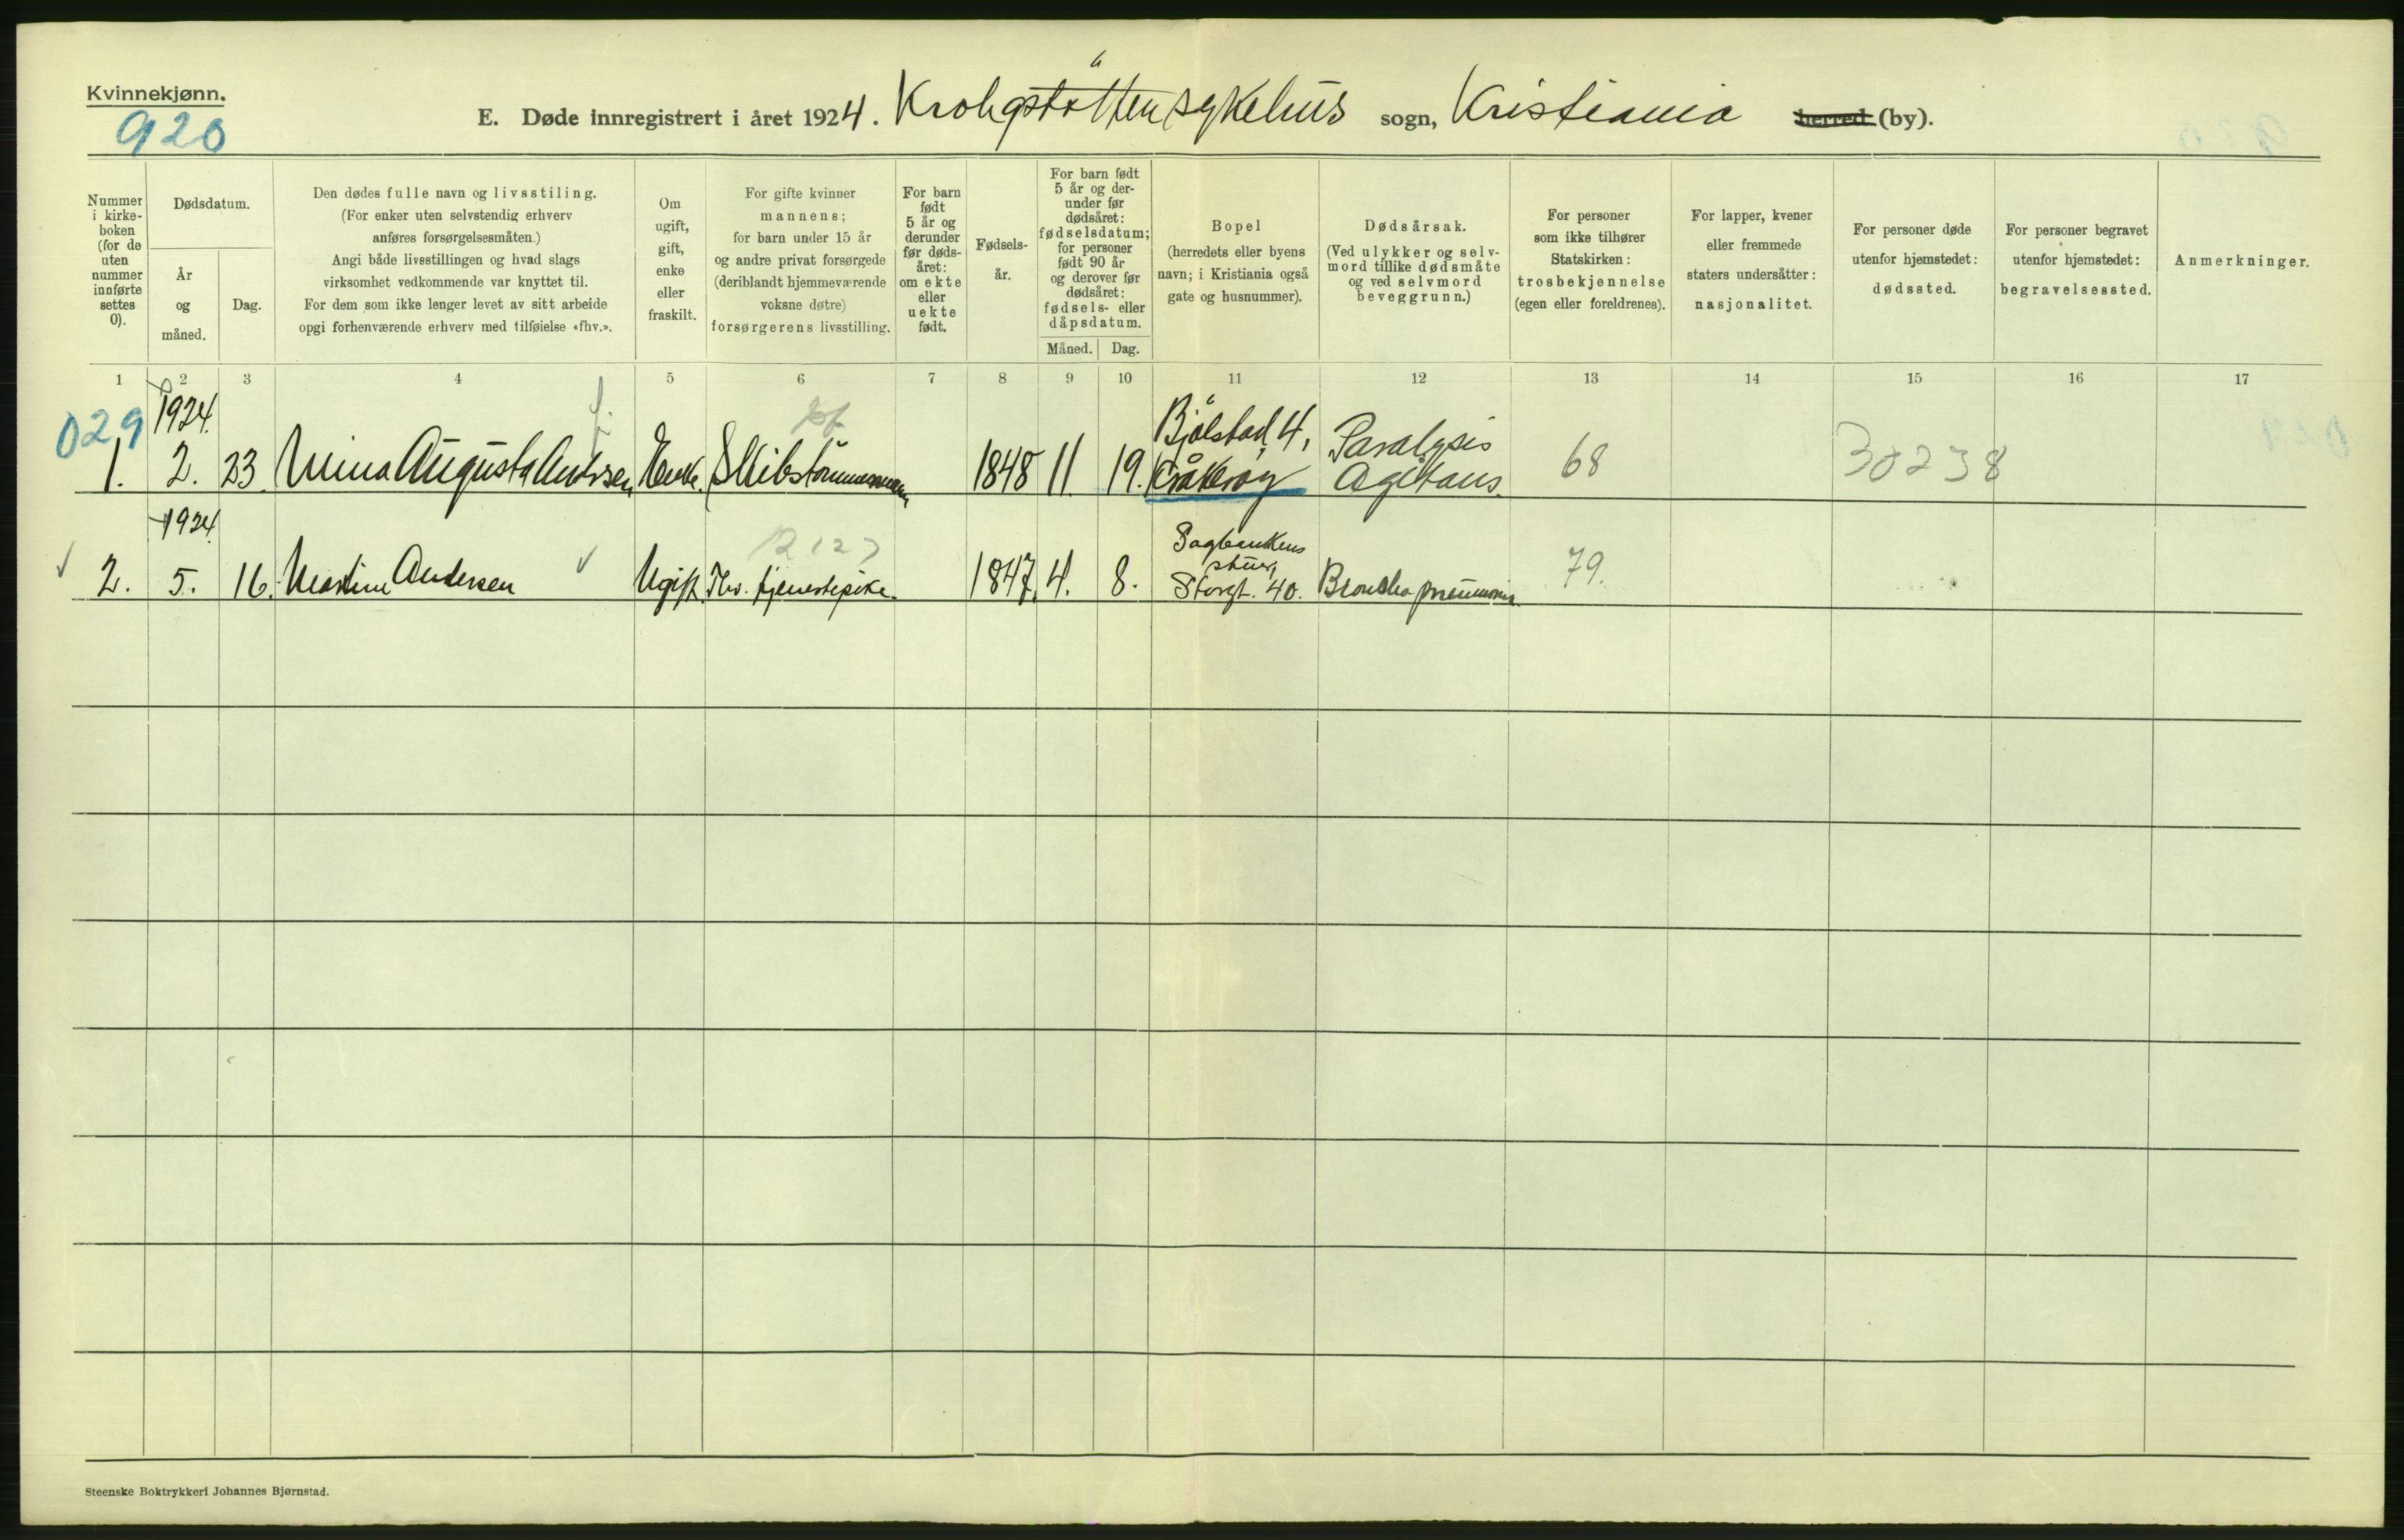 Kvinnekjønn.
920
E. Døde innregistrert i året 1924. Krohgstøtten sykehus sogn, Kristiania herred (by).
Nummer i kirke-boken (for de uten nummer innførte settes 0).
Dødsdatum.
År og måned.
Dag.
Den dødes fulle navn og livsstiling.
(For enker uten selvstendig erhverv
anføres forsørgelsesmåten.)
Angi både livsstillingen og hvad slags
virksomhet vedkommende var knyttet til.
For dem som ikke lenger levet av sitt arbeide
opgi forhenværende erhverv med tilføielse «fhv.».
Om ugift, gift, enke eller fraskilt.
For gifte kvinner
mannens;
for barn under 15 år
og andre privat forsørgede
(deriblandt hjemmeværende
voksne døtre)
forsørgerens livsstilling.
For barn født 5 år og derunder før døds-året: om ekte eller uekte født.
Fødsels-år.
For barn født
5 år og der-
under før
dødsåret:
fødselsdatum;
for personer
født 90 år
og derover før
dødsåret:
fødsels- eller
dåpsdatum.
Måned. Dag.
Bopel
(herredets eller byens
navn; i Kristiania også
gate og husnummer).
Dødsårsak.
(Ved ulykker og selv-
mord tillike dødsmåte
og ved selvmord
beveggrunn.)
For personer
som ikke tilhører
Statskirken:
trosbekjennelse
(egen eller foreldrenes).
For lapper, kvener
eller fremmede
staters undersåtter:
nasjonalitet.
For personer døde
utenfor hjemstedet:
dødssted.
For personer begravet
utenfor hjemstedet:
begravelsessted.
Anmerkninger.
1 2 3 4 5 6 7 8 9 10 11 12 13 14 15 16 17
029 1924.
1. 2. 23. Mina Augusta Enke. Skibstømmermann 1848 11. 19. Bjølstad 4, Kråkerøy Paralysis Agitans. 68 30238
1924.
2. 5. 16. Martine Andersen Ugift. Fhv. tjenestepike. 1847. 4. 8. Storgt. 40. Broncho pneumonia. 79.
Steenske Boktrykkeri Johannes Bjørnstad.